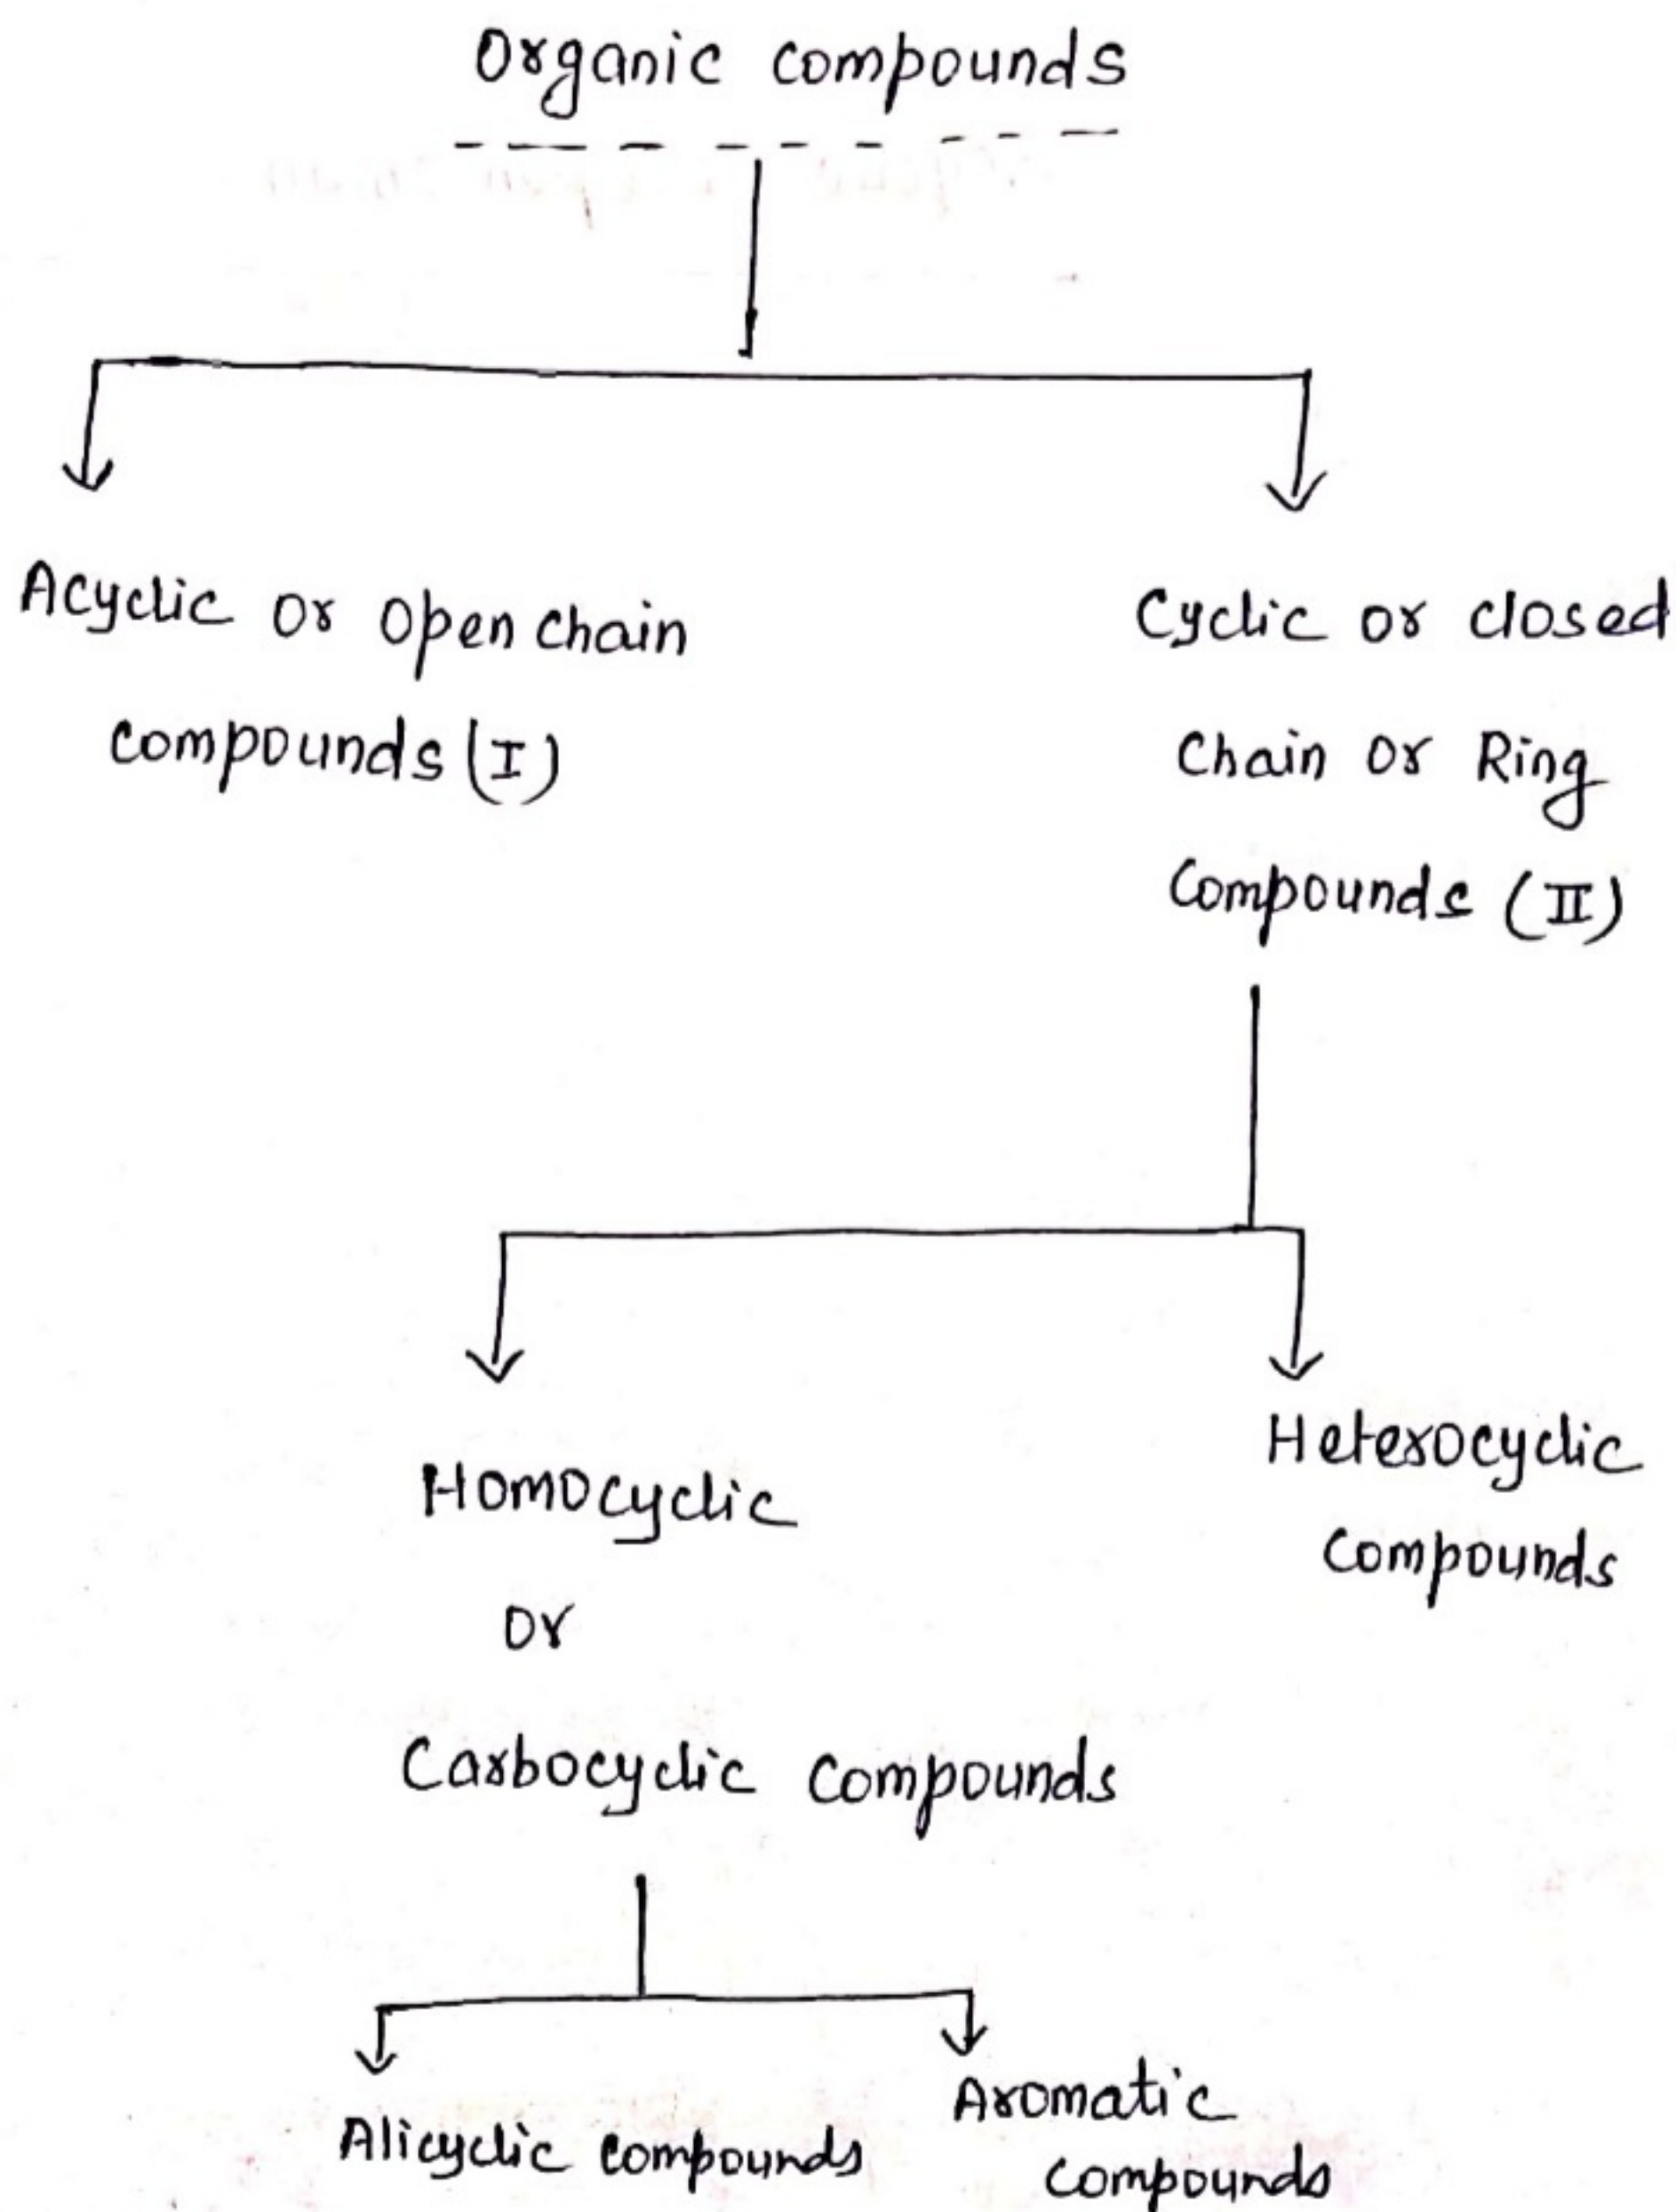 Organic compounds
Acyclic or open chain
compounds (I)
Cyclic or closed
Chain or Ring
Compounds (II)
Homocyclic
or
Carbocyclic compounds
Heterocyclic
Compounds
Alicyclic compounds
Aromatic
compounds